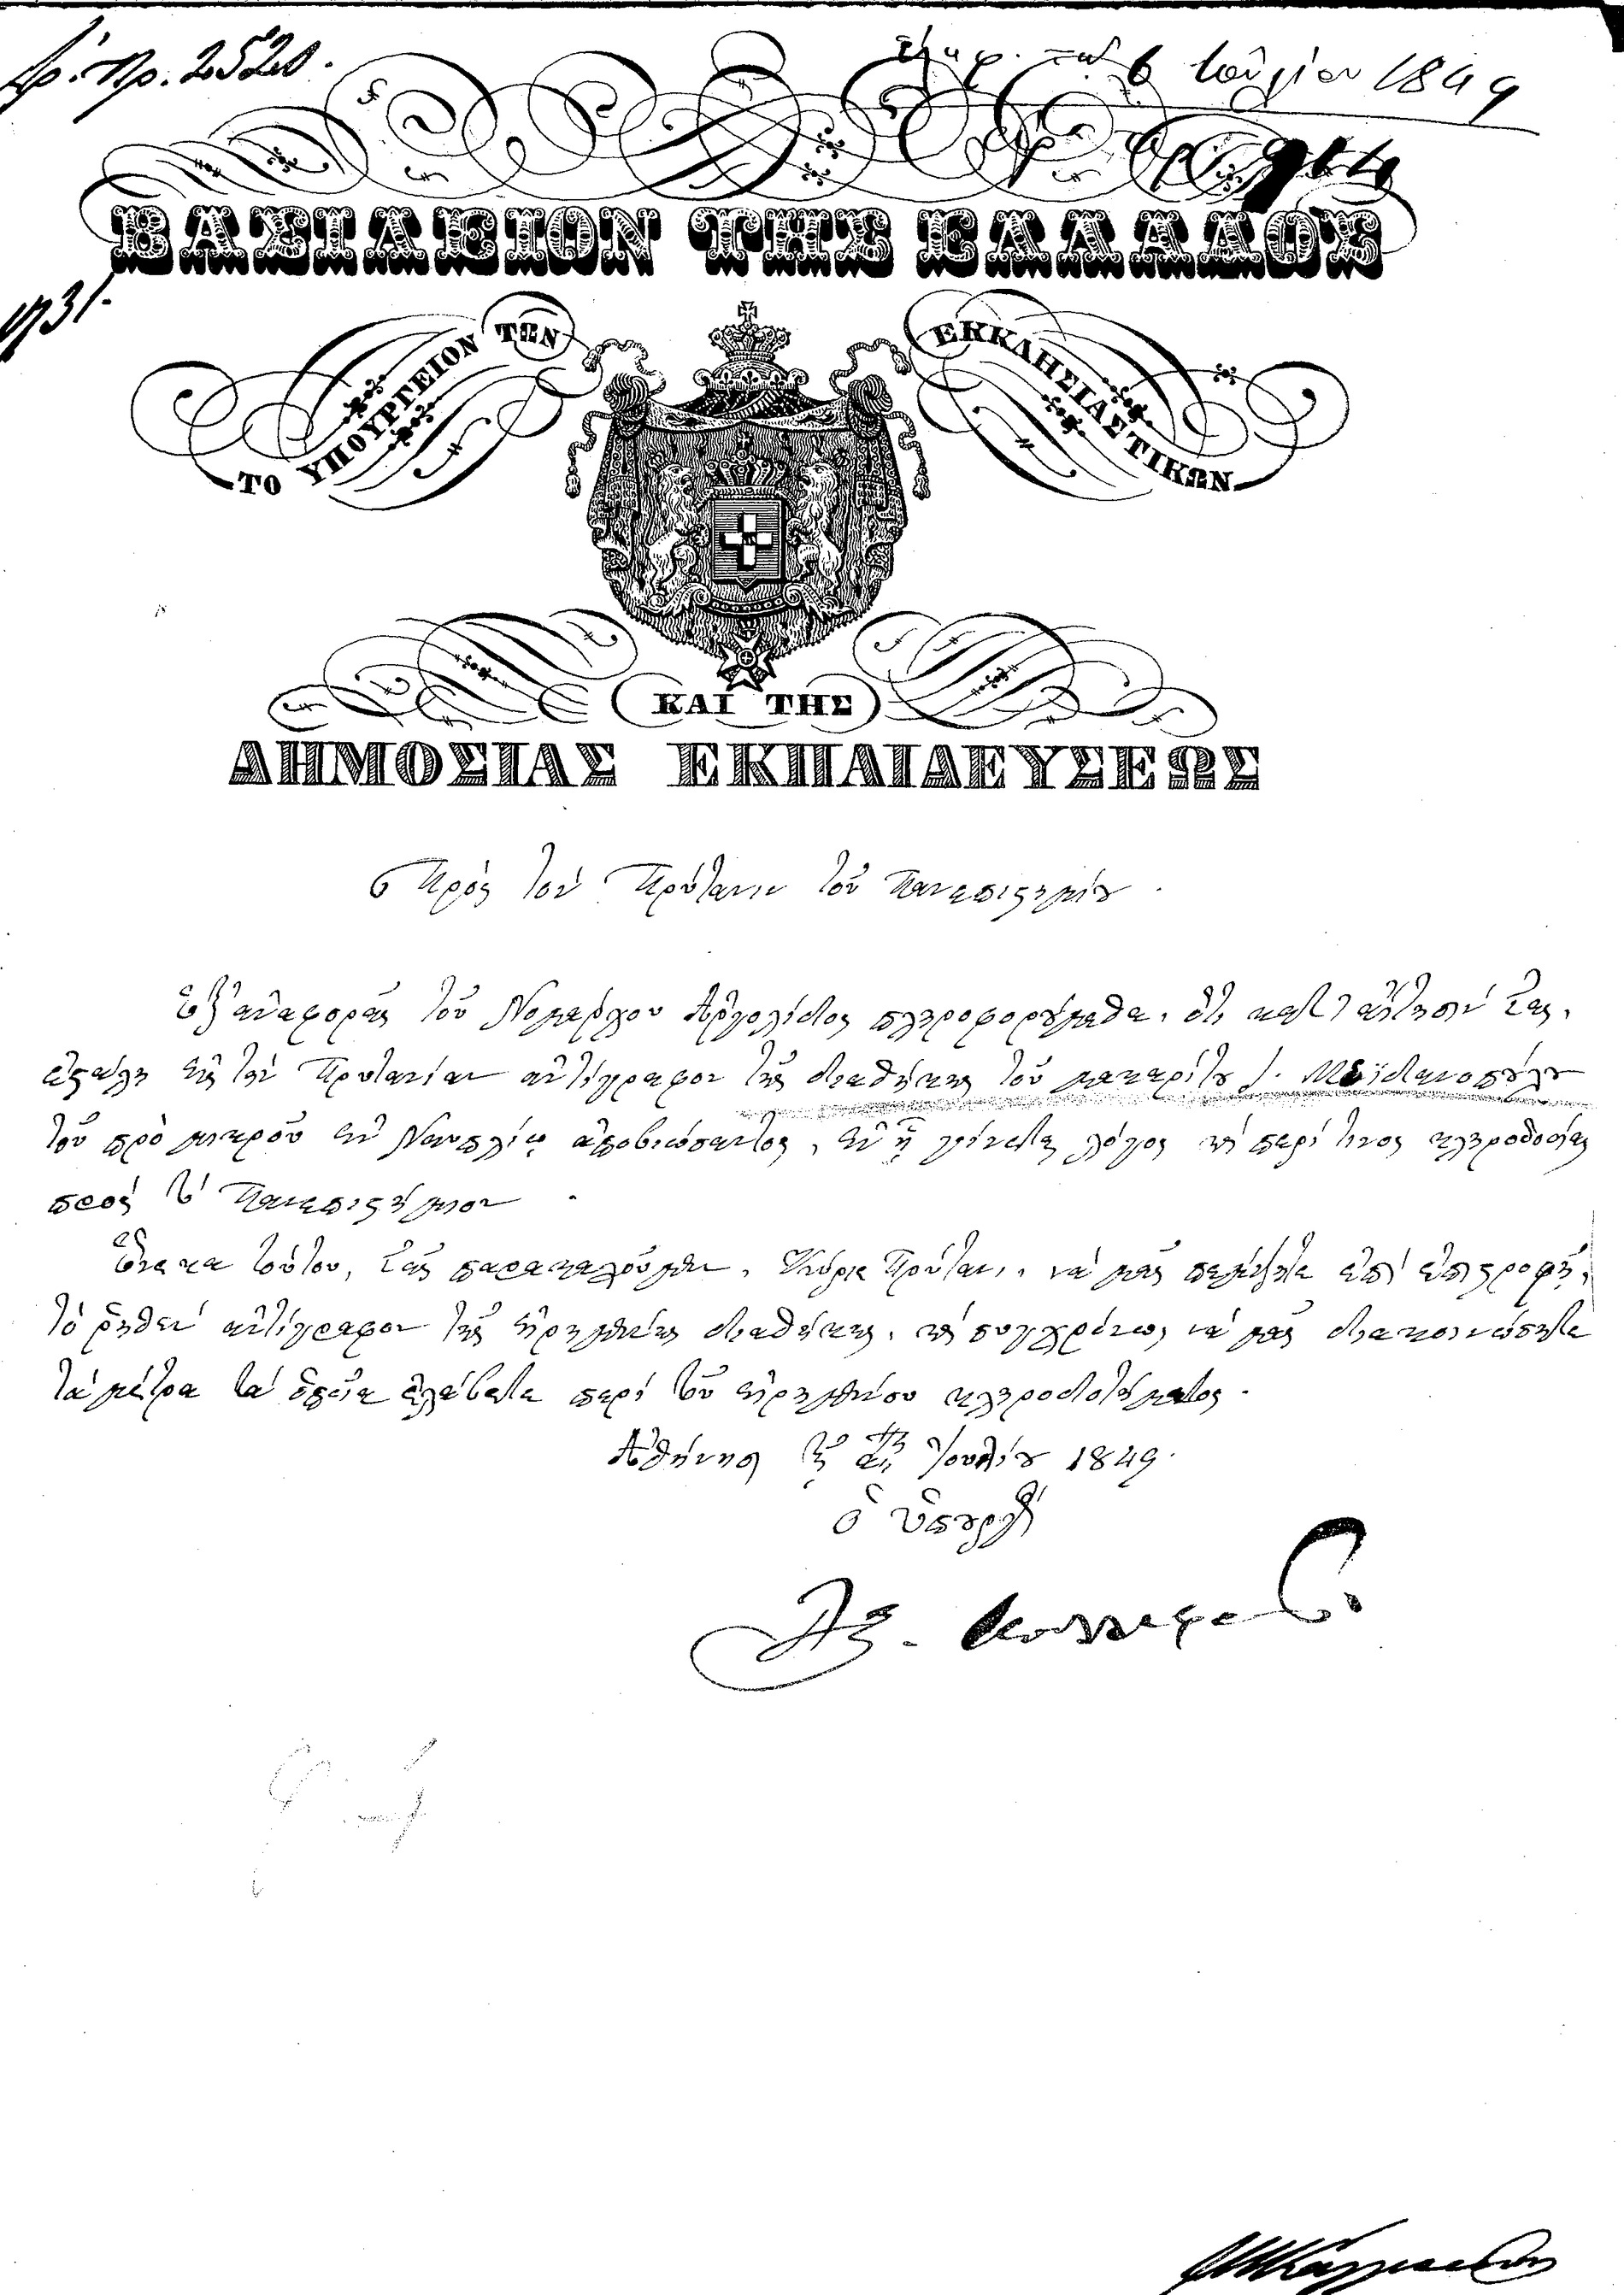 Ἀρ. Πρ. 2520.
6 Ἰουλίου 1849
ΒΑΣΙΛΕΙΟΝ ΤΗΣ ΕΛΛΑΔΟΣ
ΤΟ ΥΠΟΥΡΓΕΙΟΝ ΤΩΝ ΕΚΚΛΗΣΙΑΣΤΙΚΩΝ
ΚΑΙ ΤΗΣ
ΔΗΜΟΣΙΑΣ ΕΚΠΑΙΔΕΥΣΕΩΣ
Πρὸς τὸν Πρύτανιν τοῦ Πανεπιστημίου.
Ἐξ ἀναφορᾶς τοῦ Νομάρχου Ἀργολίδος πληροφορούμεθα, ὅτι κατ' αἴτησίν Σας,
ἐστάλη εἰς τὴν Πρυτανείαν ἀντίγραφον τῆς διαθήκης τοῦ μακαρίτου Ι. Μοϊδανοπούλου
τοῦ πρὸ μικροῦ ἐν Ναυπλίῳ ἀποβιώσαντος, ἐν ᾗ γίνεται λόγος καὶ περί τινος κληροδοσίας
πρὸς τὸ Πανεπιστήμιον.
Ἕνεκα τούτου, Σᾶς παρακαλοῦμεν, Κύριε Πρύτανι, νὰ μᾶς πέμψητε ἐπὶ ἐπιστροφῇ,
τὸ ῥηθὲν ἀντίγραφον τῆς εἰρημένης διαθήκης, καὶ συγχρόνως νὰ μᾶς διακοινώσητε
τὰ μέτρα τὰ ὁποῖα ἐλάβατε περὶ τοῦ εἰρημένου κληροδοτήματος.
Ἀθήνησι τῇ Ἰουλίου 1849.
ὁ ὑπουργὸς